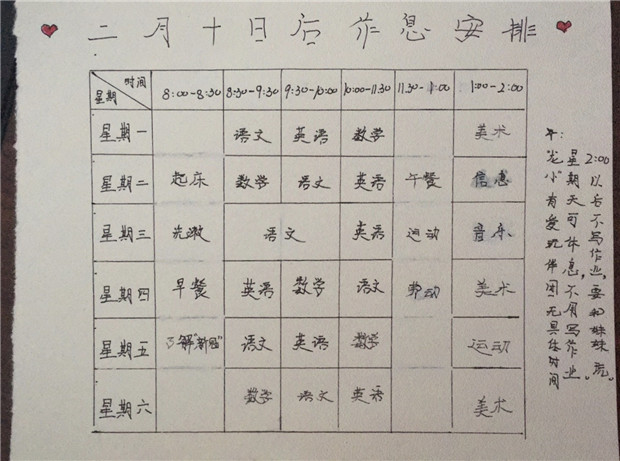 二月十日后作息安排
时间
星期 8:00-8:30 8:30-9:30 9:30-10:00 10:00-11:30 11:30-1:00 1:00-2:00
星期一 语文 英语 数学 美术
星期二 起床 数学 语文 英语 午餐 信息
星期三 洗漱 语文 英语 运动 音乐
星期四 早餐 英语 数学 语文 劳动 美术
星期五 了解"新冠" 语文 英语 数学 运动
星期六 数学 语文 英语 美术
2:00以后不写作业,要和妹妹玩。
星期天可休息,不用写作业。
小 有爱玩伴 间无具体时间